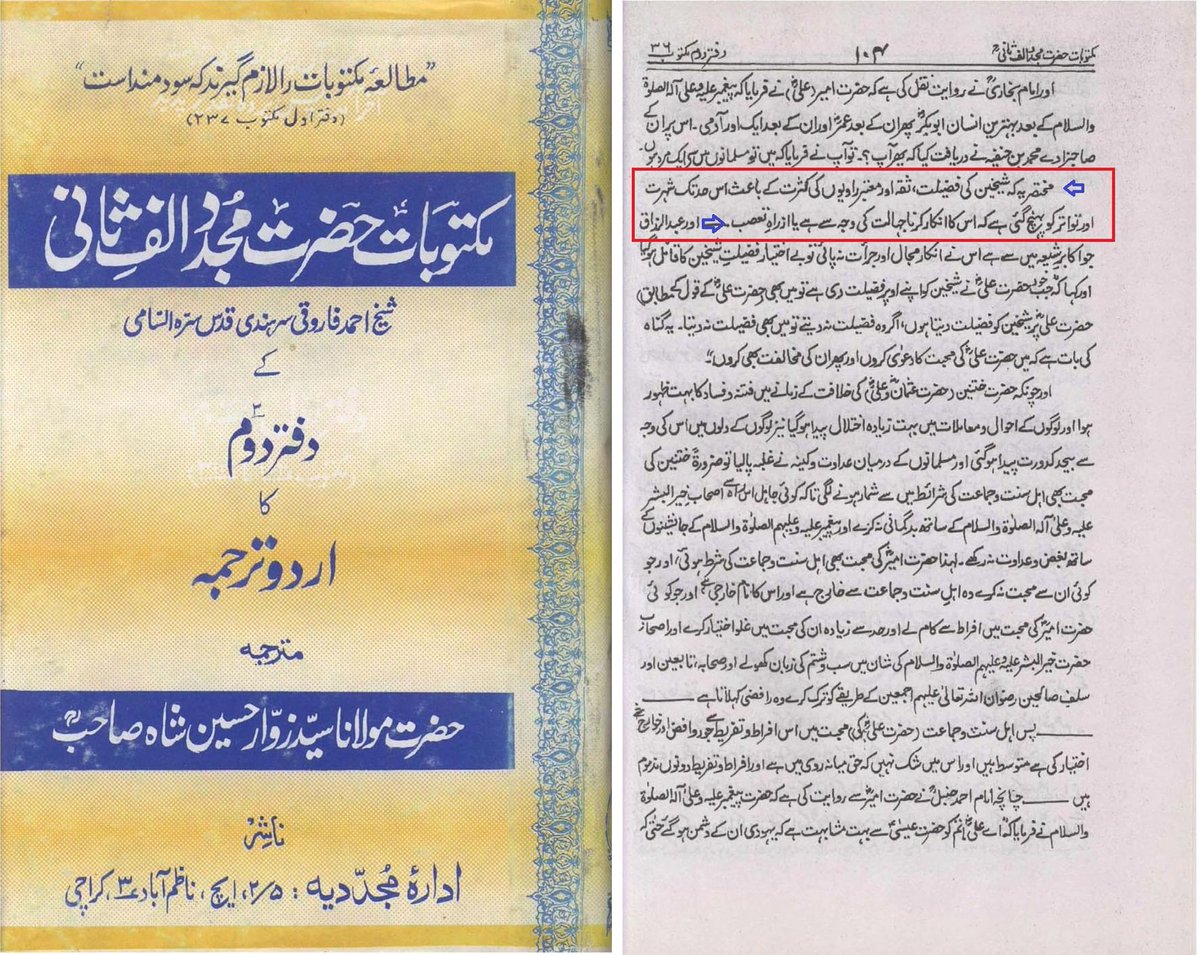 ”مطالعۂ مکتوبات را لازم گیرند که سود مند است“
(دفتر اول مکتوب ۲۳۷)
مکتوبات حضرت مجدد الف ثانی
شیخ احمد فاروقی سرہندی قدس سرہ السامی
کے
دفتر دوم
کا
اردو ترجمہ
مترجمہ
حضرت مولانا سید زوار حسین شاہ صاحبؒ
ناشر
ادارۂ مجددیہ : ۲/۵، ایچ، ناظم آباد ۳، کراچی
مکتوبات حضرت مجدد الف ثانیؒ ۱۰۴ دفتر دوم مکتوب ۳۶
اور امام بخاریؒ نے روایت نقل کی ہے کہ حضرت امیر (علیؓ) نے فرمایا کہ پیغمبر علیہ وعلیٰ آلہ الصلوٰۃ
والسلام کے بعد بہترین انسان ابوبکرؓ پھر ان کے بعد عمرؓ اور ان کے بعد ایک اور آدمی ۔ اس پر ان کے
صاحبزادے محمد بن حنفیہ نے دریافت کیا کہ پھر آپ ؟۔ تو آپ نے فرمایا کہ میں تو مسلمانوں میں سے ایک مرد ہوں
مختصر یہ کہ شیخین کی فضیلت، ثقہ اور معتبر راویوں کی کثرت کے باعث اس حد تک شہرت
اور تواتر کو پہنچ گئی ہے کہ اس کا انکار کرنا جہالت کی وجہ سے ہے یا ازراہِ تعصب ۔ اور عبدالرزاق
جو اکابر شیعہ میں سے ہے اس نے انکار کی مجال اور جرأت نہ پائی تو بے اختیار فضیلتِ شیخین کا قائل ہو گیا
اور کہا کہ جب حضرت علیؓ نے شیخین کو اپنے اوپر فضیلت دی ہے تو میں بھی (حضرت علیؓ کے قول کے مطابق)
حضرت علیؓ پر شیخین کو فضیلت دیتا ہوں، اگر وہ فضیلت نہ دیتے تو میں بھی فضیلت نہ دیتا ۔ یہ گناہ
کی بات ہے کہ میں حضرت علیؓ کی محبت کا دعویٰ کروں اور پھر ان کی مخالفت بھی کروں“
اور چونکہ حضرت ختنین (حضرت عثمانؓ وعلیؓ) کی خلافت کے زمانے میں فتنہ و فساد کا بہت ظہور
ہوا اور لوگوں کے احوال و معاملات میں بہت زیادہ اختلال پیدا ہو گیا نیز لوگوں کے دلوں میں اس کی وجہ
سے بیحد کدورت پیدا ہو گئی اور مسلمانوں کے درمیان عداوت و کینہ نے غلبہ پا لیا تو ضرورۃً ختنین کی
محبت بھی اہل سنت و جماعت کی شرائط میں سے شمار ہونے لگی تاکہ کوئی جاہل اس راہ سے اصحاب خیر البشر
علیہ وعلیٰ آلہ الصلوٰۃ والسلام کے ساتھ بدگمانی نہ کرے اور پیغمبر علیہ وعلیہم الصلوٰۃ والسلام کے جانشینوں کے
ساتھ بغض و عداوت نہ رکھے ۔ لہٰذا حضرت امیرؓ کی محبت بھی اہل سنت و جماعت کی شرط ہوئی، اور جو
کوئی ان سے محبت نہ کرے وہ اہلِ سنت و جماعت سے خارج ہے اور اس کا نام خارجی ہے اور جو کوئی
حضرت امیرؓ کی محبت میں افراط سے کام لے اور حد سے زیادہ ان کی محبت میں غلو اختیار کرے اور اصحاب
حضرت خیر البشر علیہ وعلیہم الصلوٰۃ والسلام کی شان میں سب و شتم کی زبان کھولے اور صحابہ، تابعین اور
سلف صالحین رضوان اللہ تعالیٰ علیہم اجمعین کے طریقے کو ترک کرے وہ رافضی کہلاتا ہے
پس اہل سنت و جماعت (حضرت علیؓ کی) محبت میں اس افراط و تفریط سے جو روافض اور خوارج نے
اختیار کی ہے متوسط ہیں اور اس میں شک نہیں کہ حق میانہ روی میں ہے اور افراط و تفریط دونوں مذموم
ہیں چنانچہ امام احمد حنبلؒ نے حضرت امیرؓ سے روایت کی ہے کہ حضرت پیغمبر علیہ وعلیٰ آلہ الصلوٰۃ
والسلام نے فرمایا کہ ”اے علیؓ تم کو حضرت عیسیٰؑ سے بہت مشابہت ہے کہ یہودی ان کے دشمن ہو گئے حتیٰ کہ